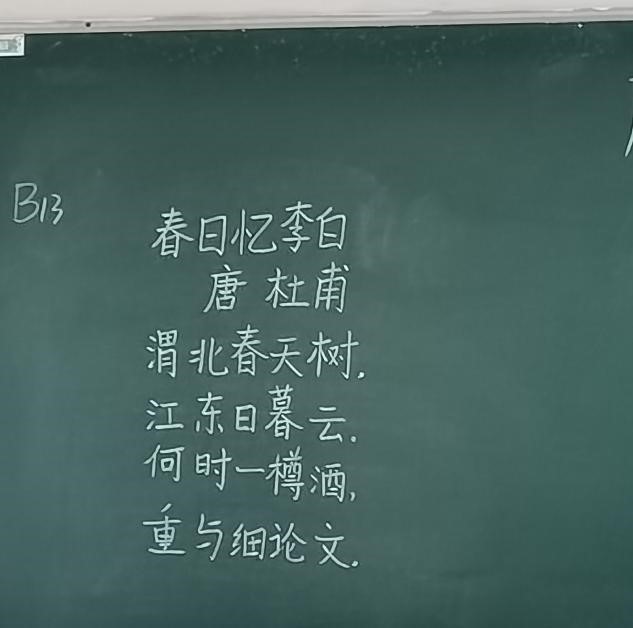 B13
春日忆李白
唐 杜甫
渭北春天树.
江东日暮云.
何时一樽酒,
重与细论文.